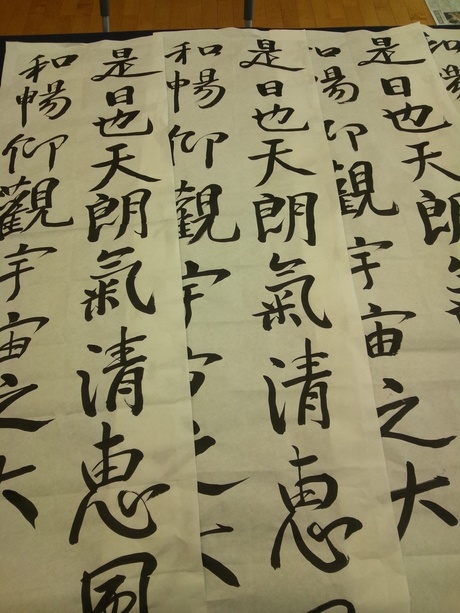 和暢
是日也天朗氣
和暢仰觀宇宙之大
是日也天朗氣清恵
和暢仰觀宇宙之大
是日也天朗氣清恵風
和暢仰觀宇宙之大